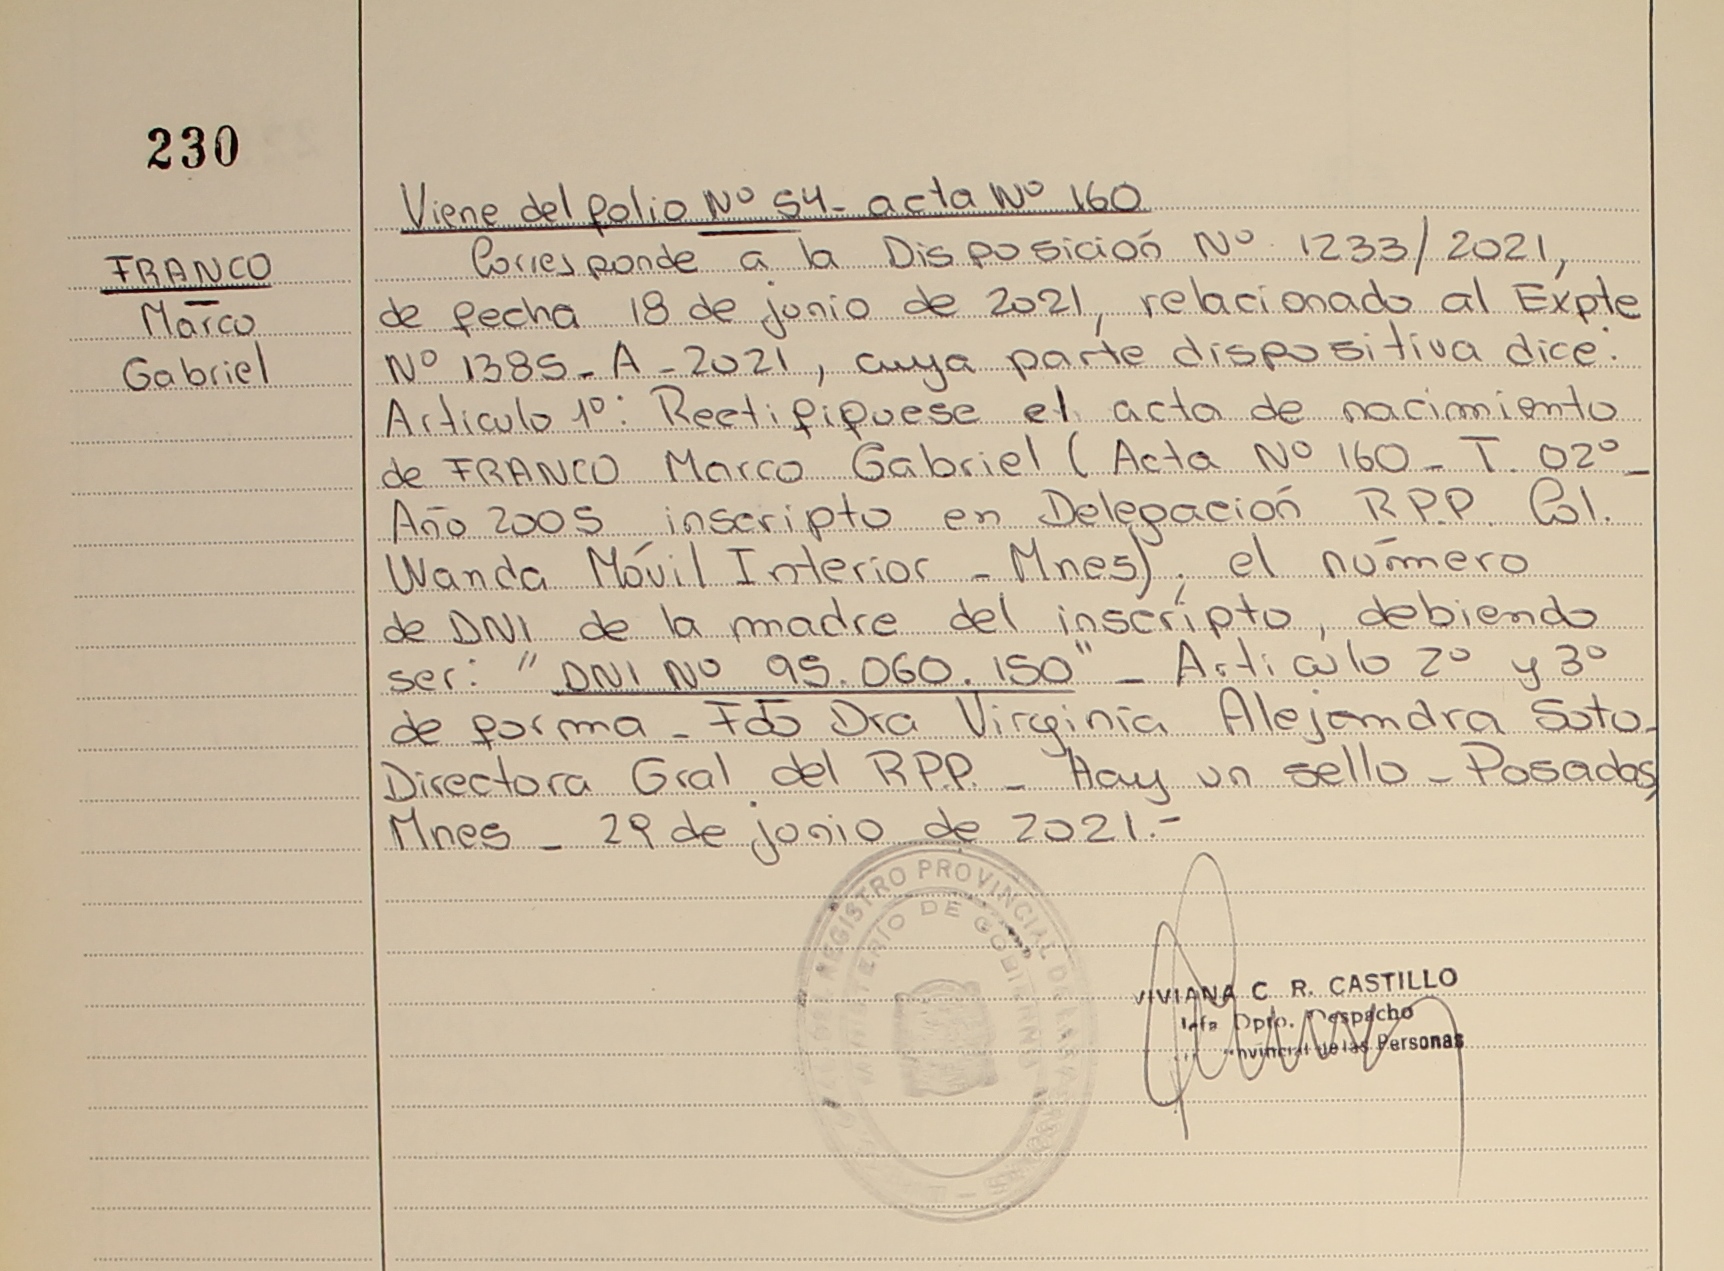 230
FRANCO
Marco
Gabriel
Viene del folio Nº 54 - acta Nº 160
Corresponde a la Disposición Nº 1233/2021,
de fecha 18 de junio de 2021, relacionado al Expte
Nº 1385 - A - 2021, cuya parte dispositiva dice:
Articulo 1º: Rectifiquese el acta de nacimiento
de FRANCO Marco Gabriel (Acta Nº 160 - T. 02º -
Año 2005 inscripto en Delegación R.P.P. Col.
Wanda Móvil Interior - Mnes), el número
de DNI de la madre del inscripto, debiendo
ser: "DNI Nº 95.060.150" - Articulo 2º y 3º
de forma - Fdo Dra Virginia Alejandra Soto -
Directora Gral del R.P.P. - Hay un sello - Posadas,
Mnes - 29 de junio de 2021.-
REGISTRO PROVINCIAL DE LAS
MINISTERIO DE GOBIERNO
VIVIANA C. R. CASTILLO
Jefa Dpto. Despacho
Provincial de las Personas